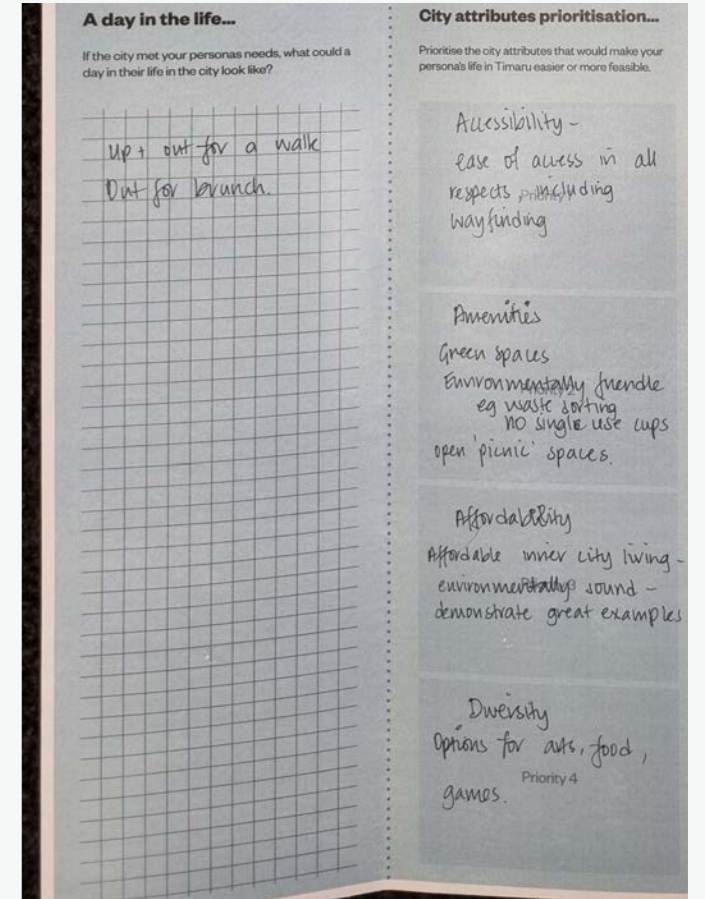 A day in the life...
If the city met your personas needs, what could a
day in their life in the city look like?
up + out for a walk
Out for brunch.
City attributes prioritisation...
Prioritise the city attributes that would make your
persona's life in Timaru easier or more feasible.
Accessibility -
ease of access in all
respects, including
wayfinding
Amenities
Green spaces
Environmentally friendle
eg waste sorting
no single use cups
open 'picnic' spaces.
Affordability
Affordable inner city living -
environmentally sound -
demonstrate great examples
Diversity
Options for arts, food,
Priority 4
games.